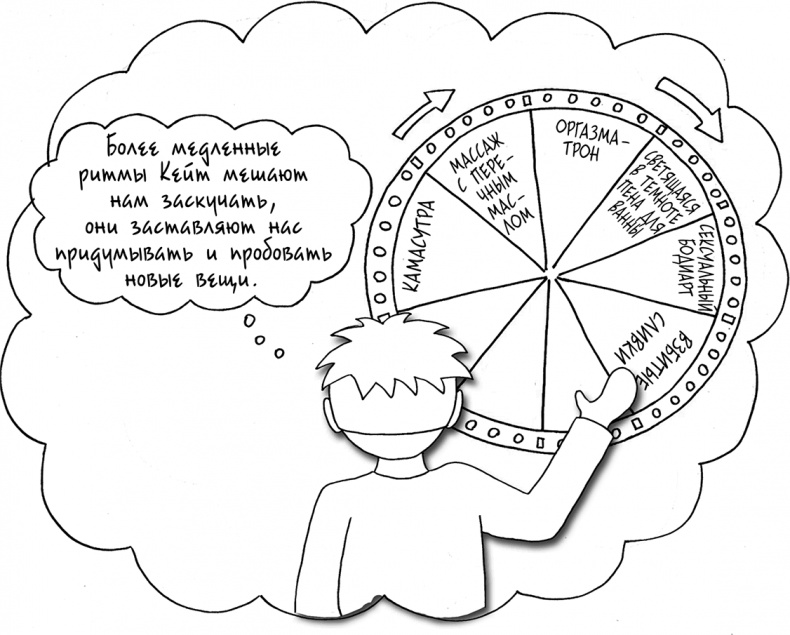 Более медленные
ритмы Кейт мешают
нам заскучать,
они заставляют нас
придумывать и пробовать
новые вещи.
КАМАСУТРА
МАССАЖ
С ПЕРЕ-
ЧНЫМ
МАС-
ЛОМ
ОРГАЗМА-
ТРОН
СВЕТЯЩАЯСЯ
В ТЕМНОТЕ
ПЕНА ДЛЯ
ВАННЫ
СЕКСУАЛЬНЫЙ
БОДИАРТ
ВЗБИТЫЕ
СЛИВКИ